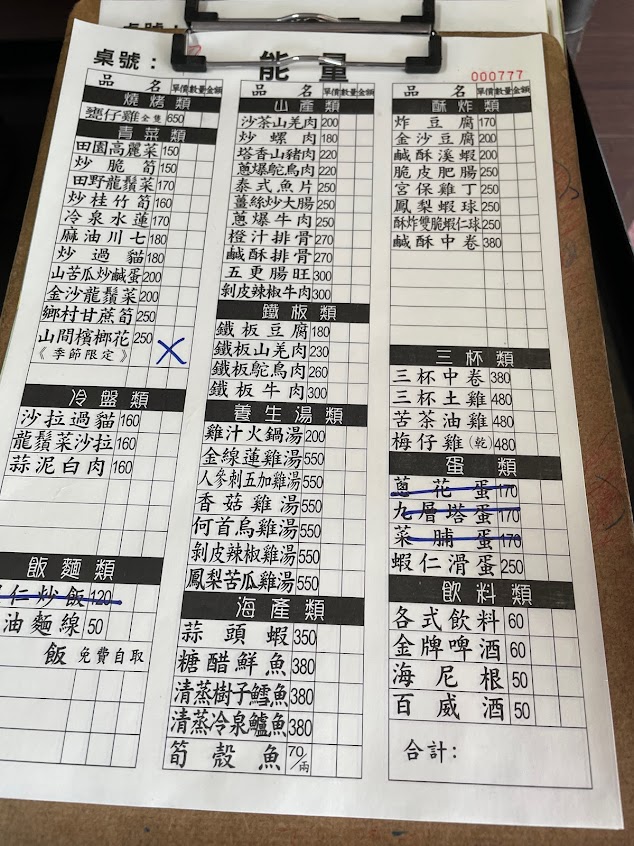 桌號：
能量
000777
品名 單價 數量 金額
燒烤類
甕仔雞 全隻 650
青菜類
田園高麗菜 150
炒脆筍 150
田野龍鬚菜 170
炒桂竹筍 160
冷泉水蓮 170
麻油川七 180
炒過貓 180
山苦瓜炒鹹蛋 200
金沙龍鬚菜 200
鄉村甘蔗筍 250
山間檳榔花 250
《季節限定》
X
冷盤類
沙拉過貓 160
龍鬚菜沙拉 160
蒜泥白肉 160
飯麵類
仁炒飯 120
油麵線 50
飯 免費自取
品名 單價 數量 金額
山產類
沙茶山羌肉 200
炒螺肉 180
塔香山豬肉 220
蔥爆鴕鳥肉 220
泰式魚片 250
薑絲炒大腸 250
蔥爆牛肉 250
橙汁排骨 270
鹹酥排骨 270
五更腸旺 300
剝皮辣椒牛肉 300
鐵板類
鐵板豆腐 180
鐵板山羌肉 230
鐵板鴕鳥肉 260
鐵板牛肉 300
養生湯類
雞汁火鍋湯 200
金線蓮雞湯 550
人參刺五加雞湯 550
香菇雞湯 550
何首烏雞湯 550
剝皮辣椒雞湯 550
鳳梨苦瓜雞湯 550
海產類
蒜頭蝦 350
糖醋鮮魚 380
清蒸樹子鱈魚 380
清蒸冷泉鱸魚 380
筍殼魚 70/兩
品名 單價 數量 金額
酥炸類
炸豆腐 170
金沙豆腐 200
鹹酥溪蝦 200
脆皮肥腸 250
宮保雞丁 250
鳳梨蝦球 250
酥炸雙脆蝦仁球 250
鹹酥中卷 380
三杯類
三杯中卷 380
三杯土雞 480
苦茶油雞 480
梅仔雞（乾） 480
蛋類
蔥花蛋 170
九層塔蛋 170
菜脯蛋 170
蝦仁滑蛋 250
飲料類
各式飲料 60
金牌啤酒 60
海尼根 50
百威酒 50
合計：